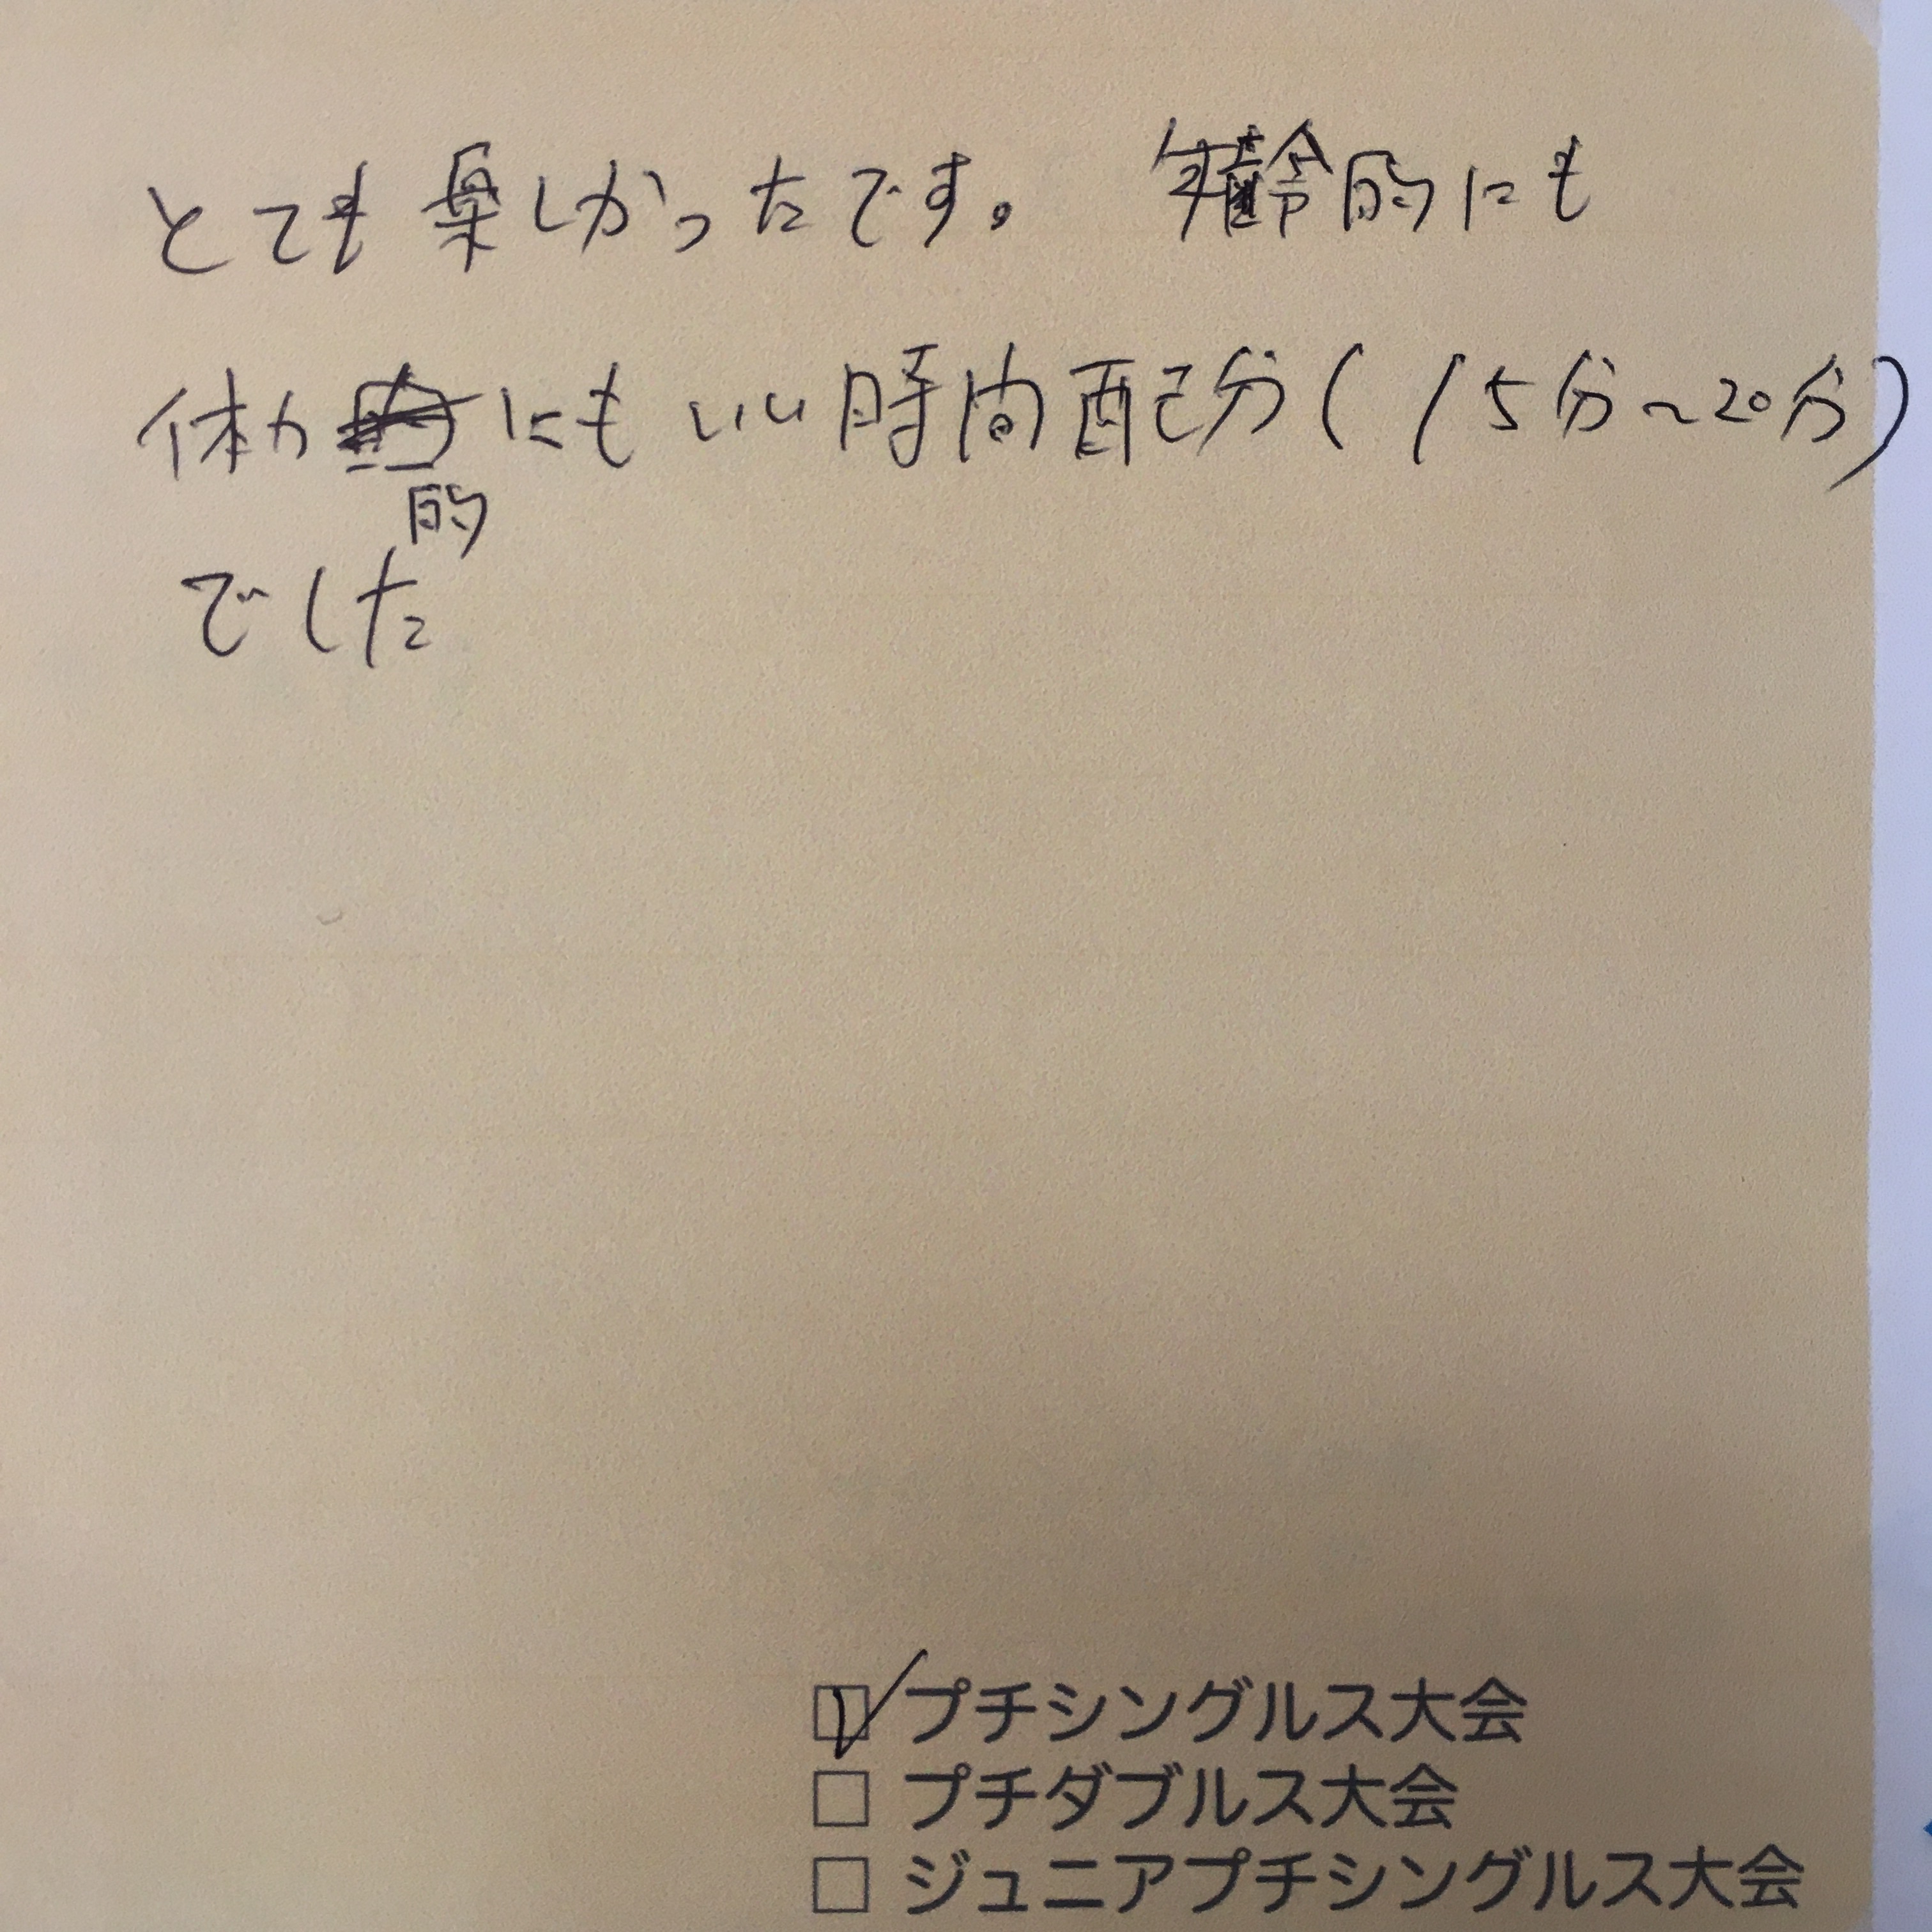 とても楽しかったです。 年齢的にも
体力的にもいい時間配分(15分~20分)
でした
プチシングルス大会
プチダブルス大会
ジュニアプチシングルス大会